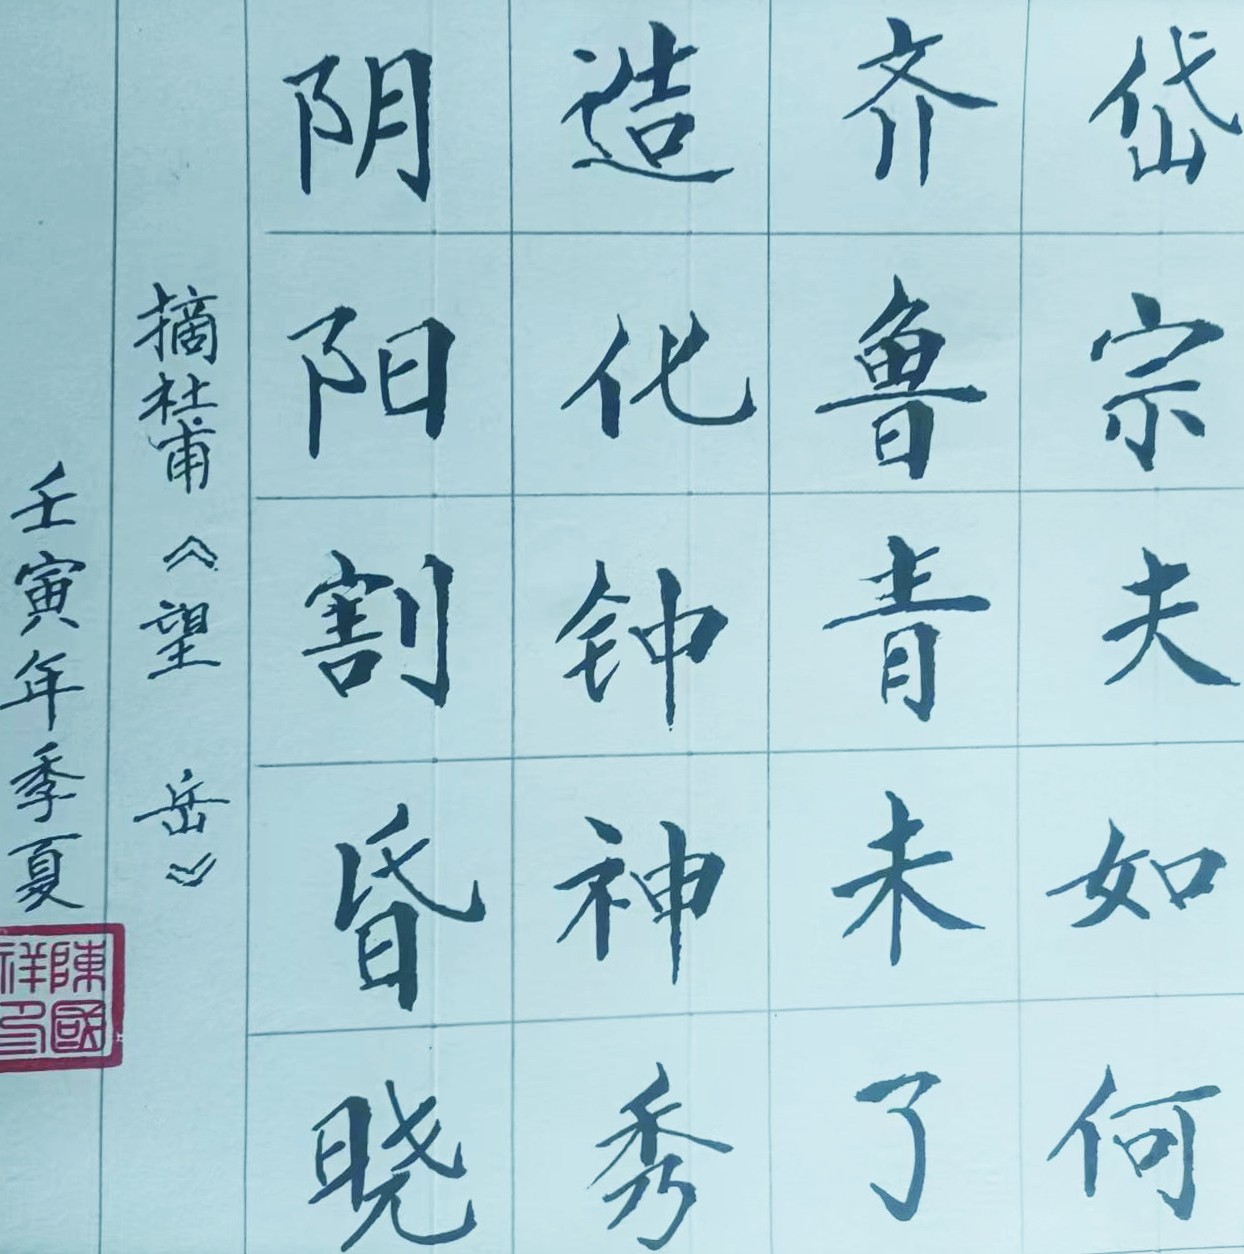 岱宗夫如何
齐鲁青未了
造化钟神秀
阴阳割昏晓
摘杜甫《望岳》
壬寅年季夏
陳國祥印